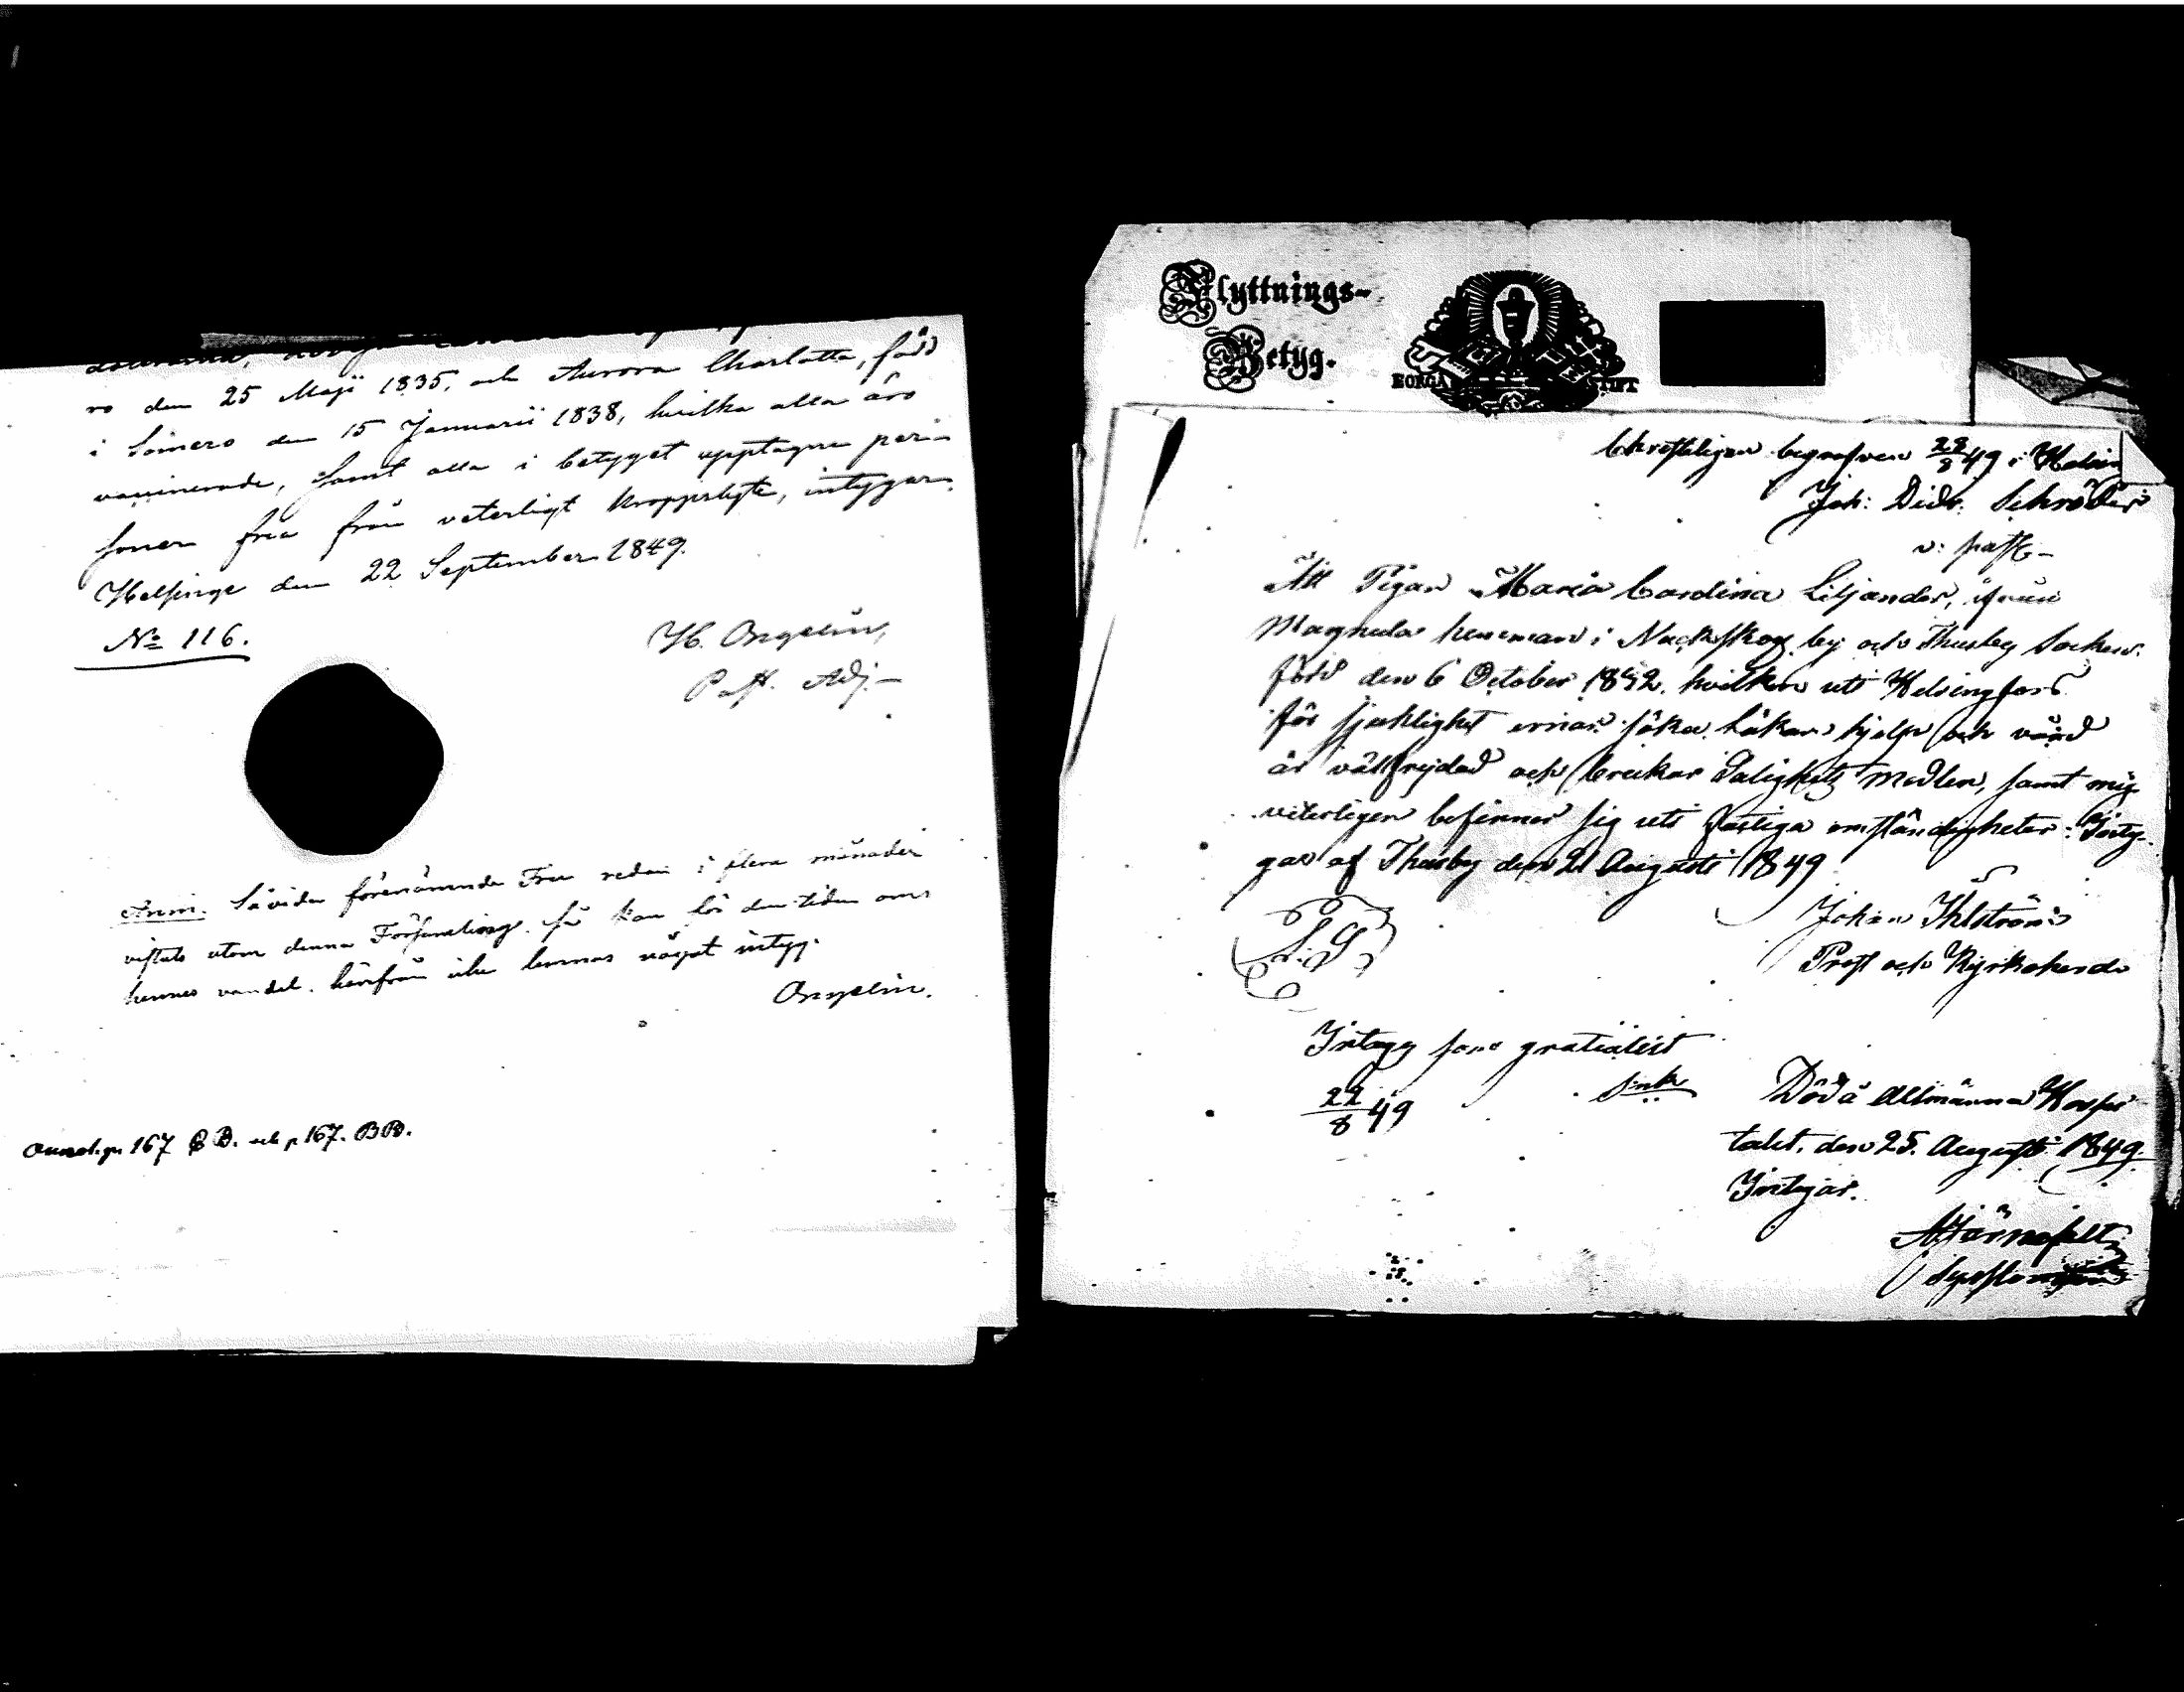 ro den 25 Maji 1835, och Aurora Charlotta, född
i Somero den 15 Januarii 1838, hvilka alla äro
vaccinerade, samt alla i betyget upptagne per-
soner fria från veterligt kroppslyte, intygar.
Helsinge den 22 September 1849.
No 116.
H. Ongelin,
Past. Adj.
Anm. Såvida förenämnda Fru redan i flera månader
vistats utom denna Församling, så kan för den tiden om
hennes vandel härifrån icke lemnas något intyg.
Ongelin.
Annot. p. 167 B. och p. 167. BB.
Flyttnings-
Betyg.
BORGÅ STIFT
Christeligen begrafven 28/8 49 i
Joh: Didr. Schröder
v: past
Att Pigan Maria Carolina Liljander, ifrån
hemman i Nackskog by och Thusby Socken.
född den 6 October, hvilken uti Helsingfors
för sjuklighet ärnar söka Läkare hjelp och vård
är välfrejdad och brukar Salighets medlen, samt mig
veterligen befinner sig uti omständigheter. Inty-
gas af Thusby den 21 Augusti 1849
Johan Ihlström
Prost och Kyrkoherde
L. S.
Intagg som gratialist
22/8 49
Död å Allmänna Hospi
talet, den 25. Augusti 1849.
Intygar.
A Järnefelt
Syssloman